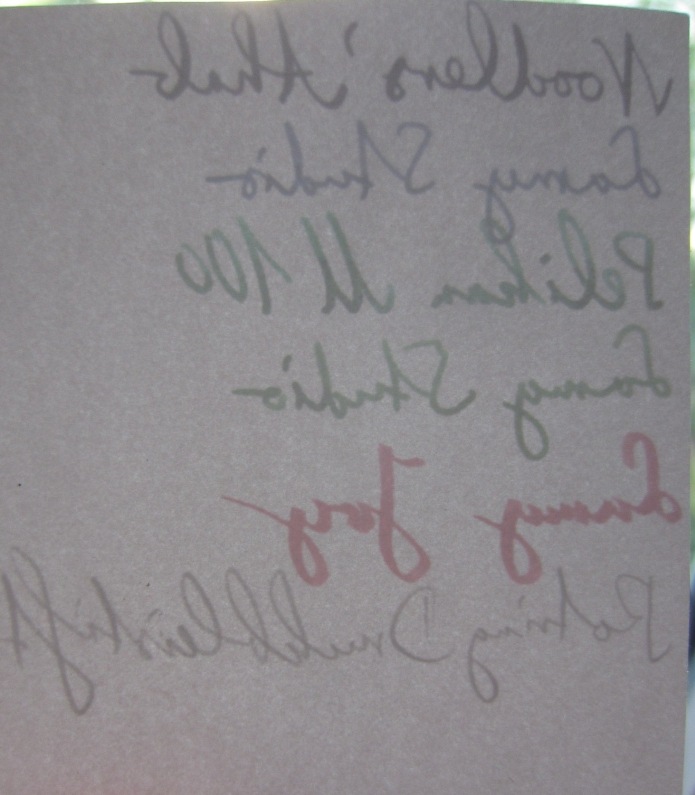 Noodlers' Ahab
Lamy Studio
Pelikan M 100
Lamy Studio
Lamy Joy
Rotring Druckbleistift